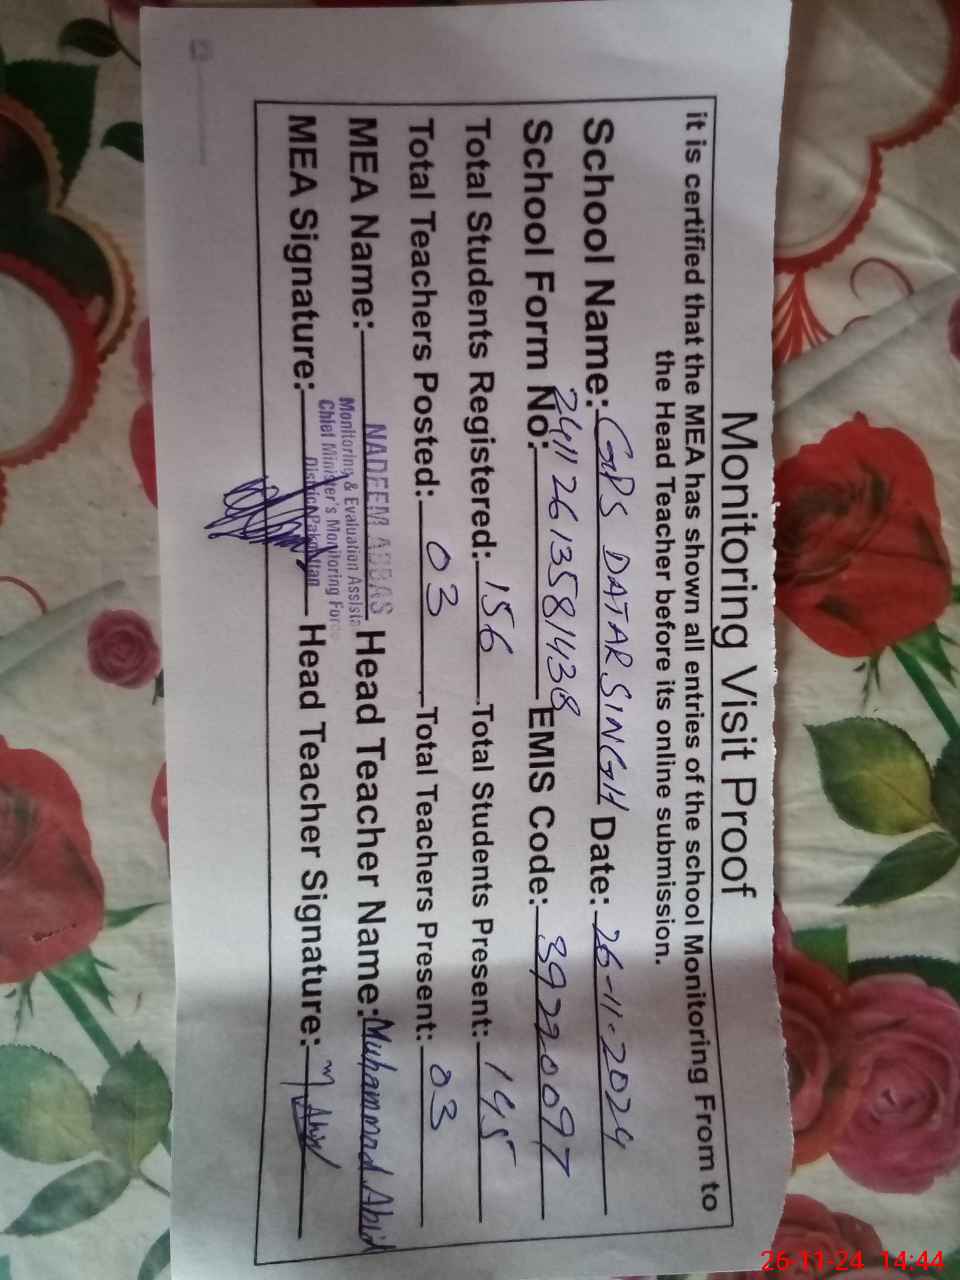 Monitoring Visit Proof
it is certified that the MEA has shown all entries of the school Monitoring From to
the Head Teacher before its online submission.
School Name: GPS DATAR SINGH Date: 26-11-2024
School Form No: 24112613581438 EMIS Code: 39220097
Total Students Registered: 156 Total Students Present: 145
Total Teachers Posted: 03 Total Teachers Present: 03
MEA Name: NADEEM ABBAS Head Teacher Name: Muhammad Abid
Monitoring & Evaluation Assista
Chief Minister's Monitoring Force
District Pakpattan
MEA Signature: Head Teacher Signature: M Abid
26-11-24 14:44